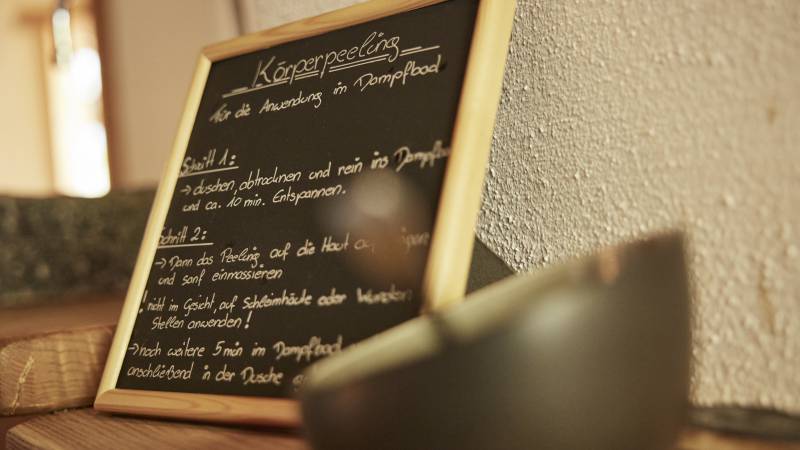 Körperpeeling
für die Anwendung im Dampfbad
Schritt 1:
→ duschen, abtrocknen und rein ins Dampfba
und ca. 10 min. Entspannen.
Schritt 2:
→ Dann das Peeling auf die Haut
und sanf einmassieren
! nicht im Gesicht, auf Schleimhäute oder Wunden
Stellen anwenden!
→ noch weitere 5 min im Dampfbad
anschließend in der Dusche